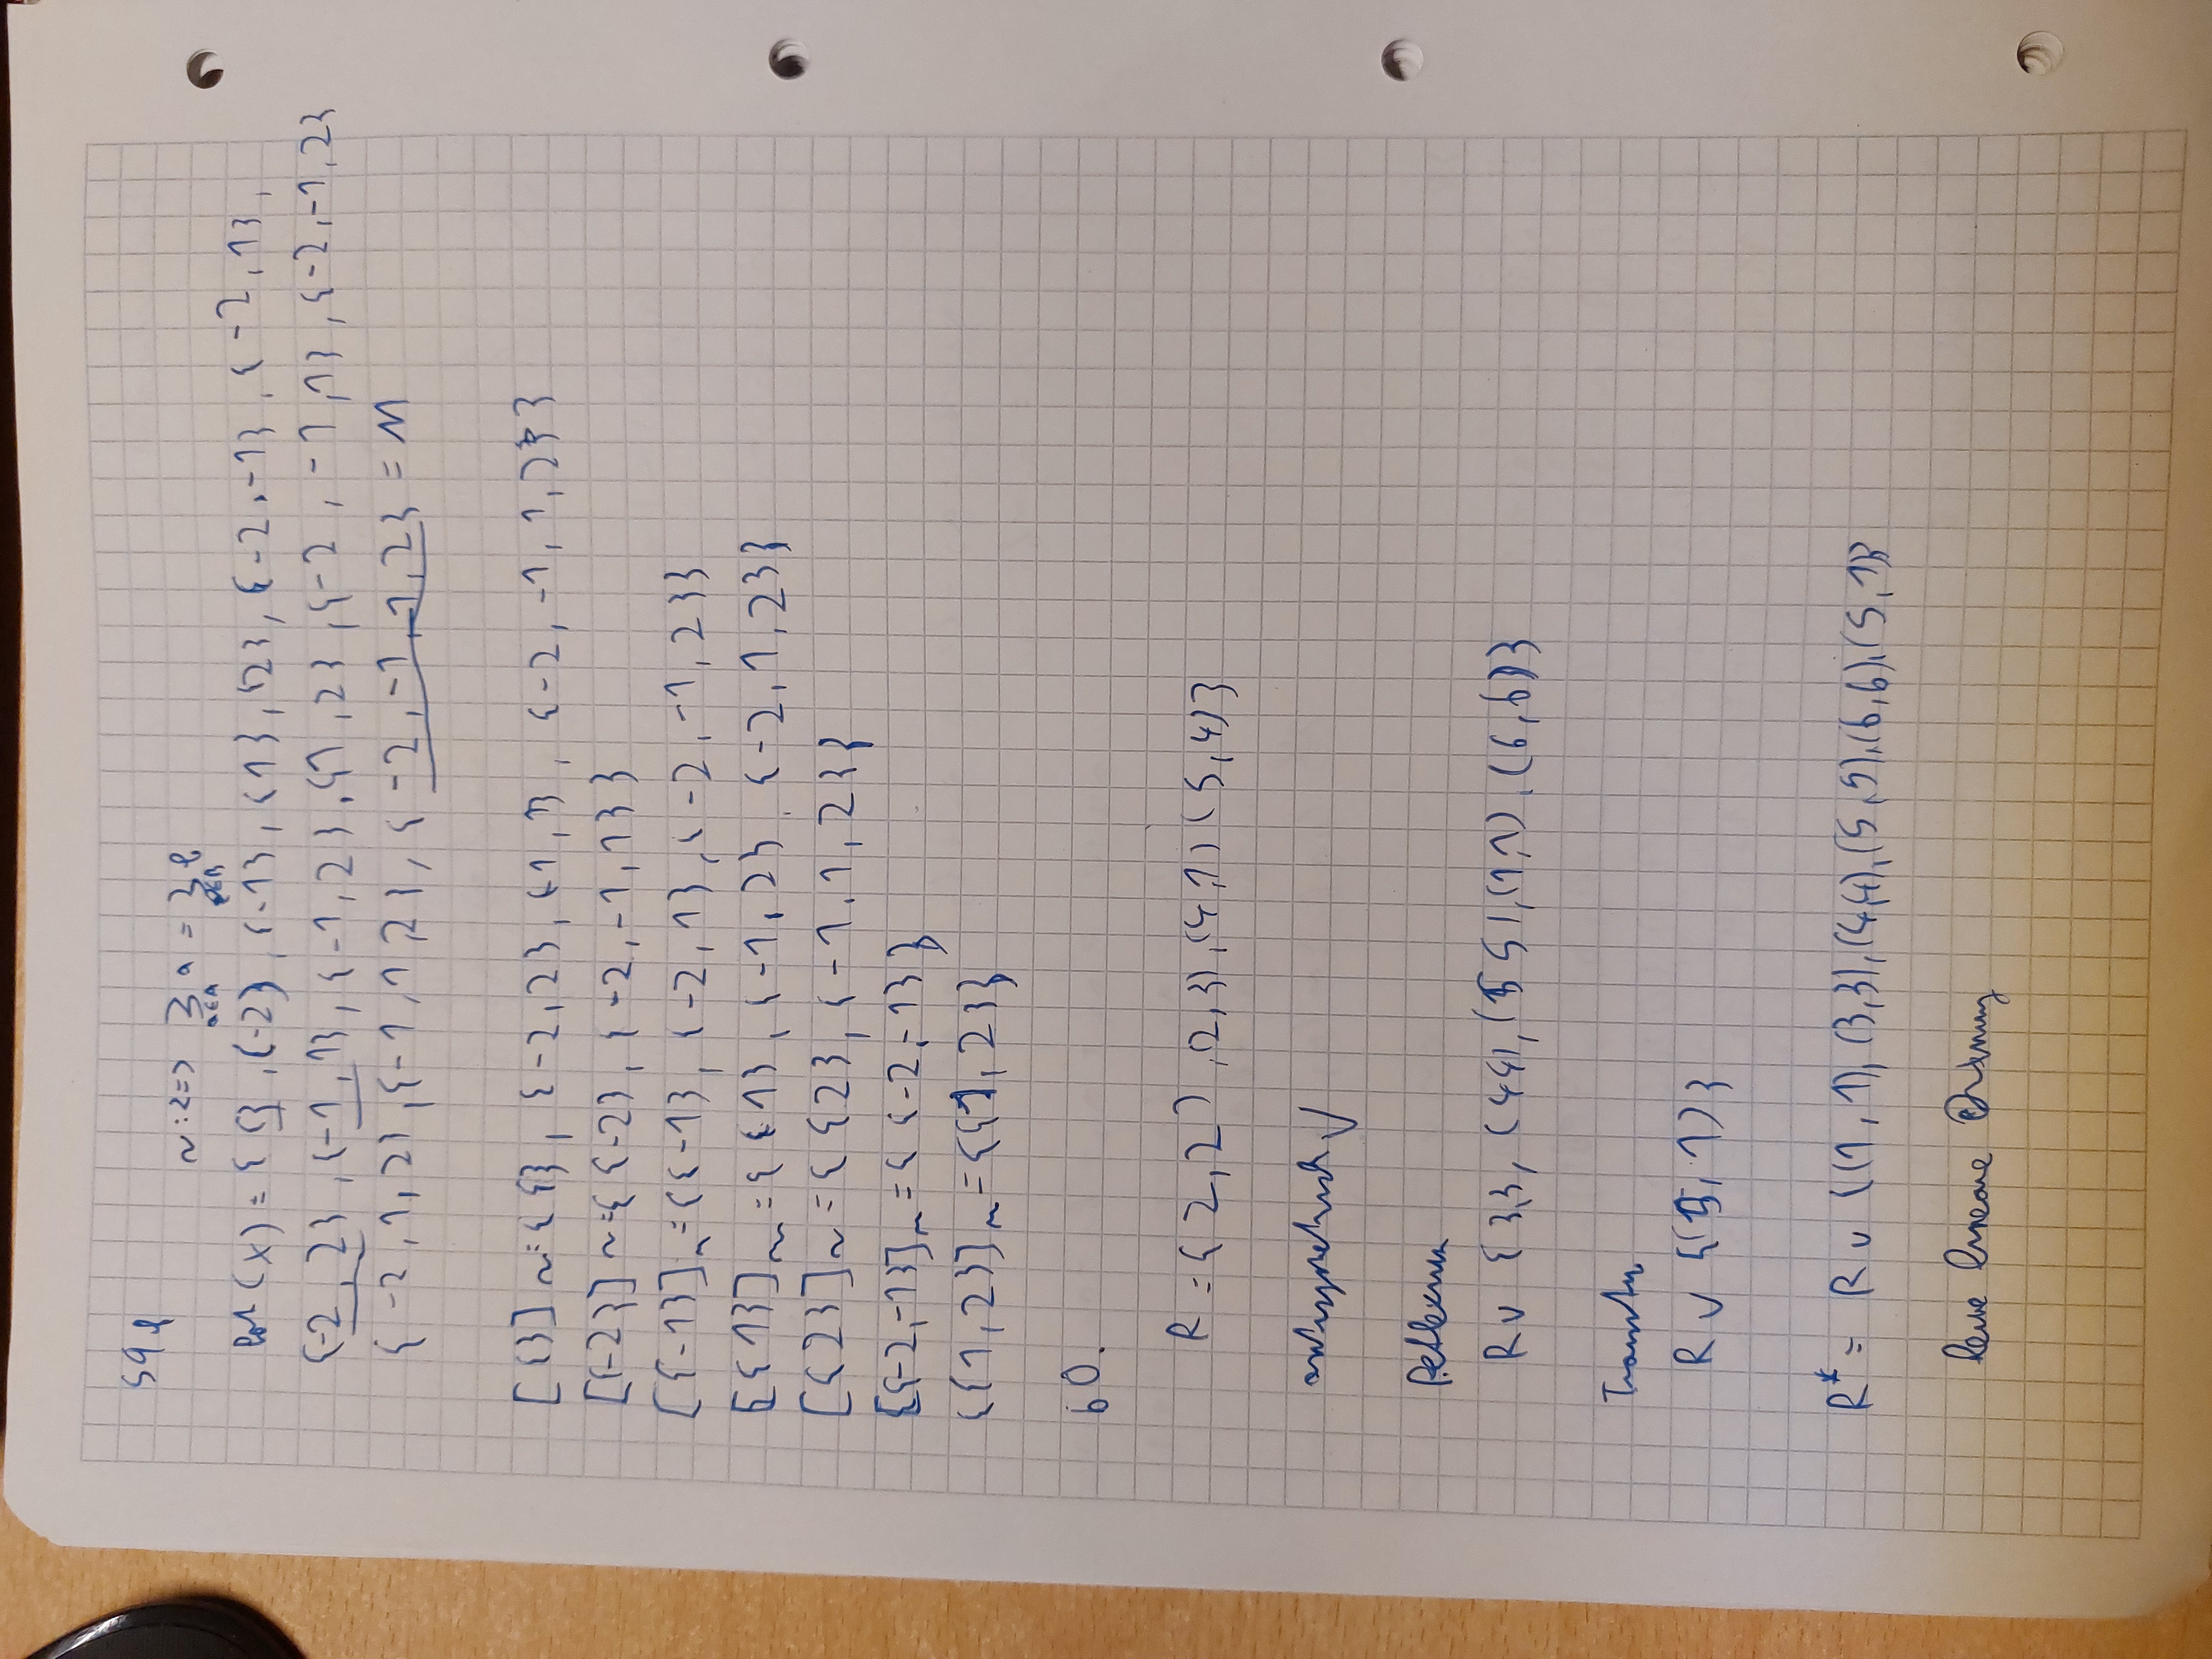 59 f
~ :<=> Σ a = Σ b
a∈A b∈B
Pot (X) = { {}, {-2}, {-1}, {1}, {2}, {-2, -1}, {-2, 1},
{-2, 2}, {-1, 1}, {-1, 2}, {1, 2}, {-2, -1, 1}, {-2, -1, 2}
{-2, 1, 2}, {-1, 1, 2}, {-2, -1, 1, 2} = M
[{}]~ = { {}, {-2, 2}, {-1, 1}, {-2, -1, 1, 2}}
[{-2}]~ = { {-2}, {-2, -1, 1}}
[{-1}]~ = {{-1}, {-2, 1}, {-2, -1, 2}}
[{1}]~ = { {1}, {-1, 2}, {-2, 1, 2}}
[{2}]~ = { {2}, {-1, 1, 2}}
[{-2,-1}]~ = { {-2,-1}}
[{1, 2}]~ = {{1, 2}}
60.
R = { 2, 2), (2, 3), (4, 1) (5, 4)}
antisymetrisch √
Reflexiv
R ∪ { 3,3, (4 4), (5 5), (1, 1), (6, 6)}
Transitiv
R ∪ {(5, 1)}
R* = R ∪ {(1, 1), (3,3), (4,4), (5,5), (6,6), (5,1)}
keine lineare Ordnung